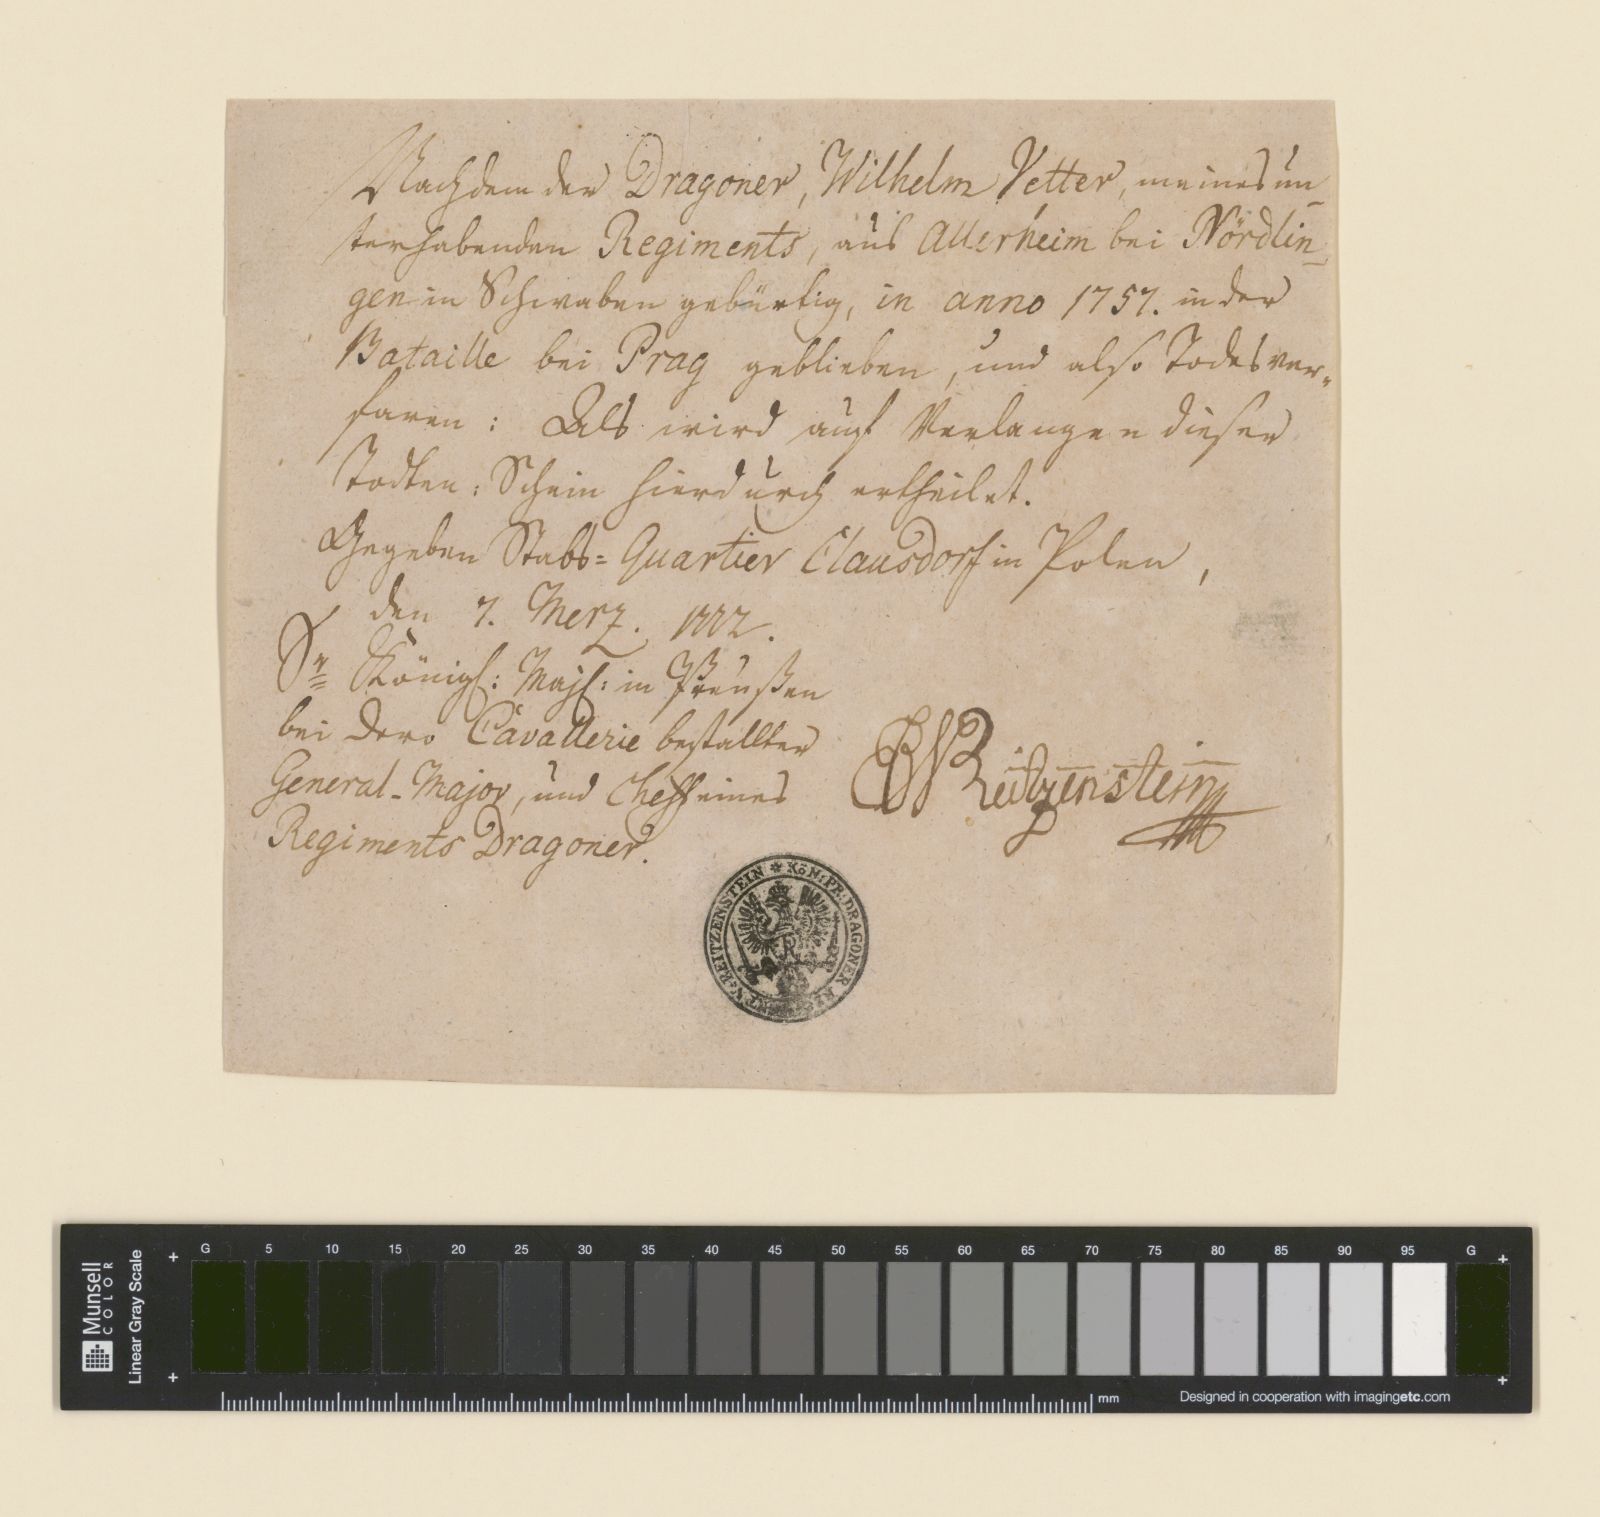 Nachdem der Dragoner, Wilhelm Vetter, meines un-
terhabenden Regiments, aus Allerheim bei Nördlin-
gen in Schwaben gebürtig, in anno 1757. in der
Bataille bei Prag geblieben, und also Todes ver-
faren: Als wird auf Verlangen dieser
Todten-Schein hierdurch ertheilet.
Gegeben Stabs-Quartier Clausdorf in Polen,
den 7. Merz. 1772.
Sr Königl: Majs: in Preußen
bei Dero Cavallerie bestallter
General-Major, und Cheff eines
Regiments Dragoner.
Reitzenstein
KÖN: PR: DRAGONER V. REITZENSTEIN
R
Munsell
COLOR
Linear Gray Scale
G 5 10 15 20 25 30 35 40 45 50 55 60 65 70 75 80 85 90 95 G
mm
Designed in cooperation with imagingetc.com